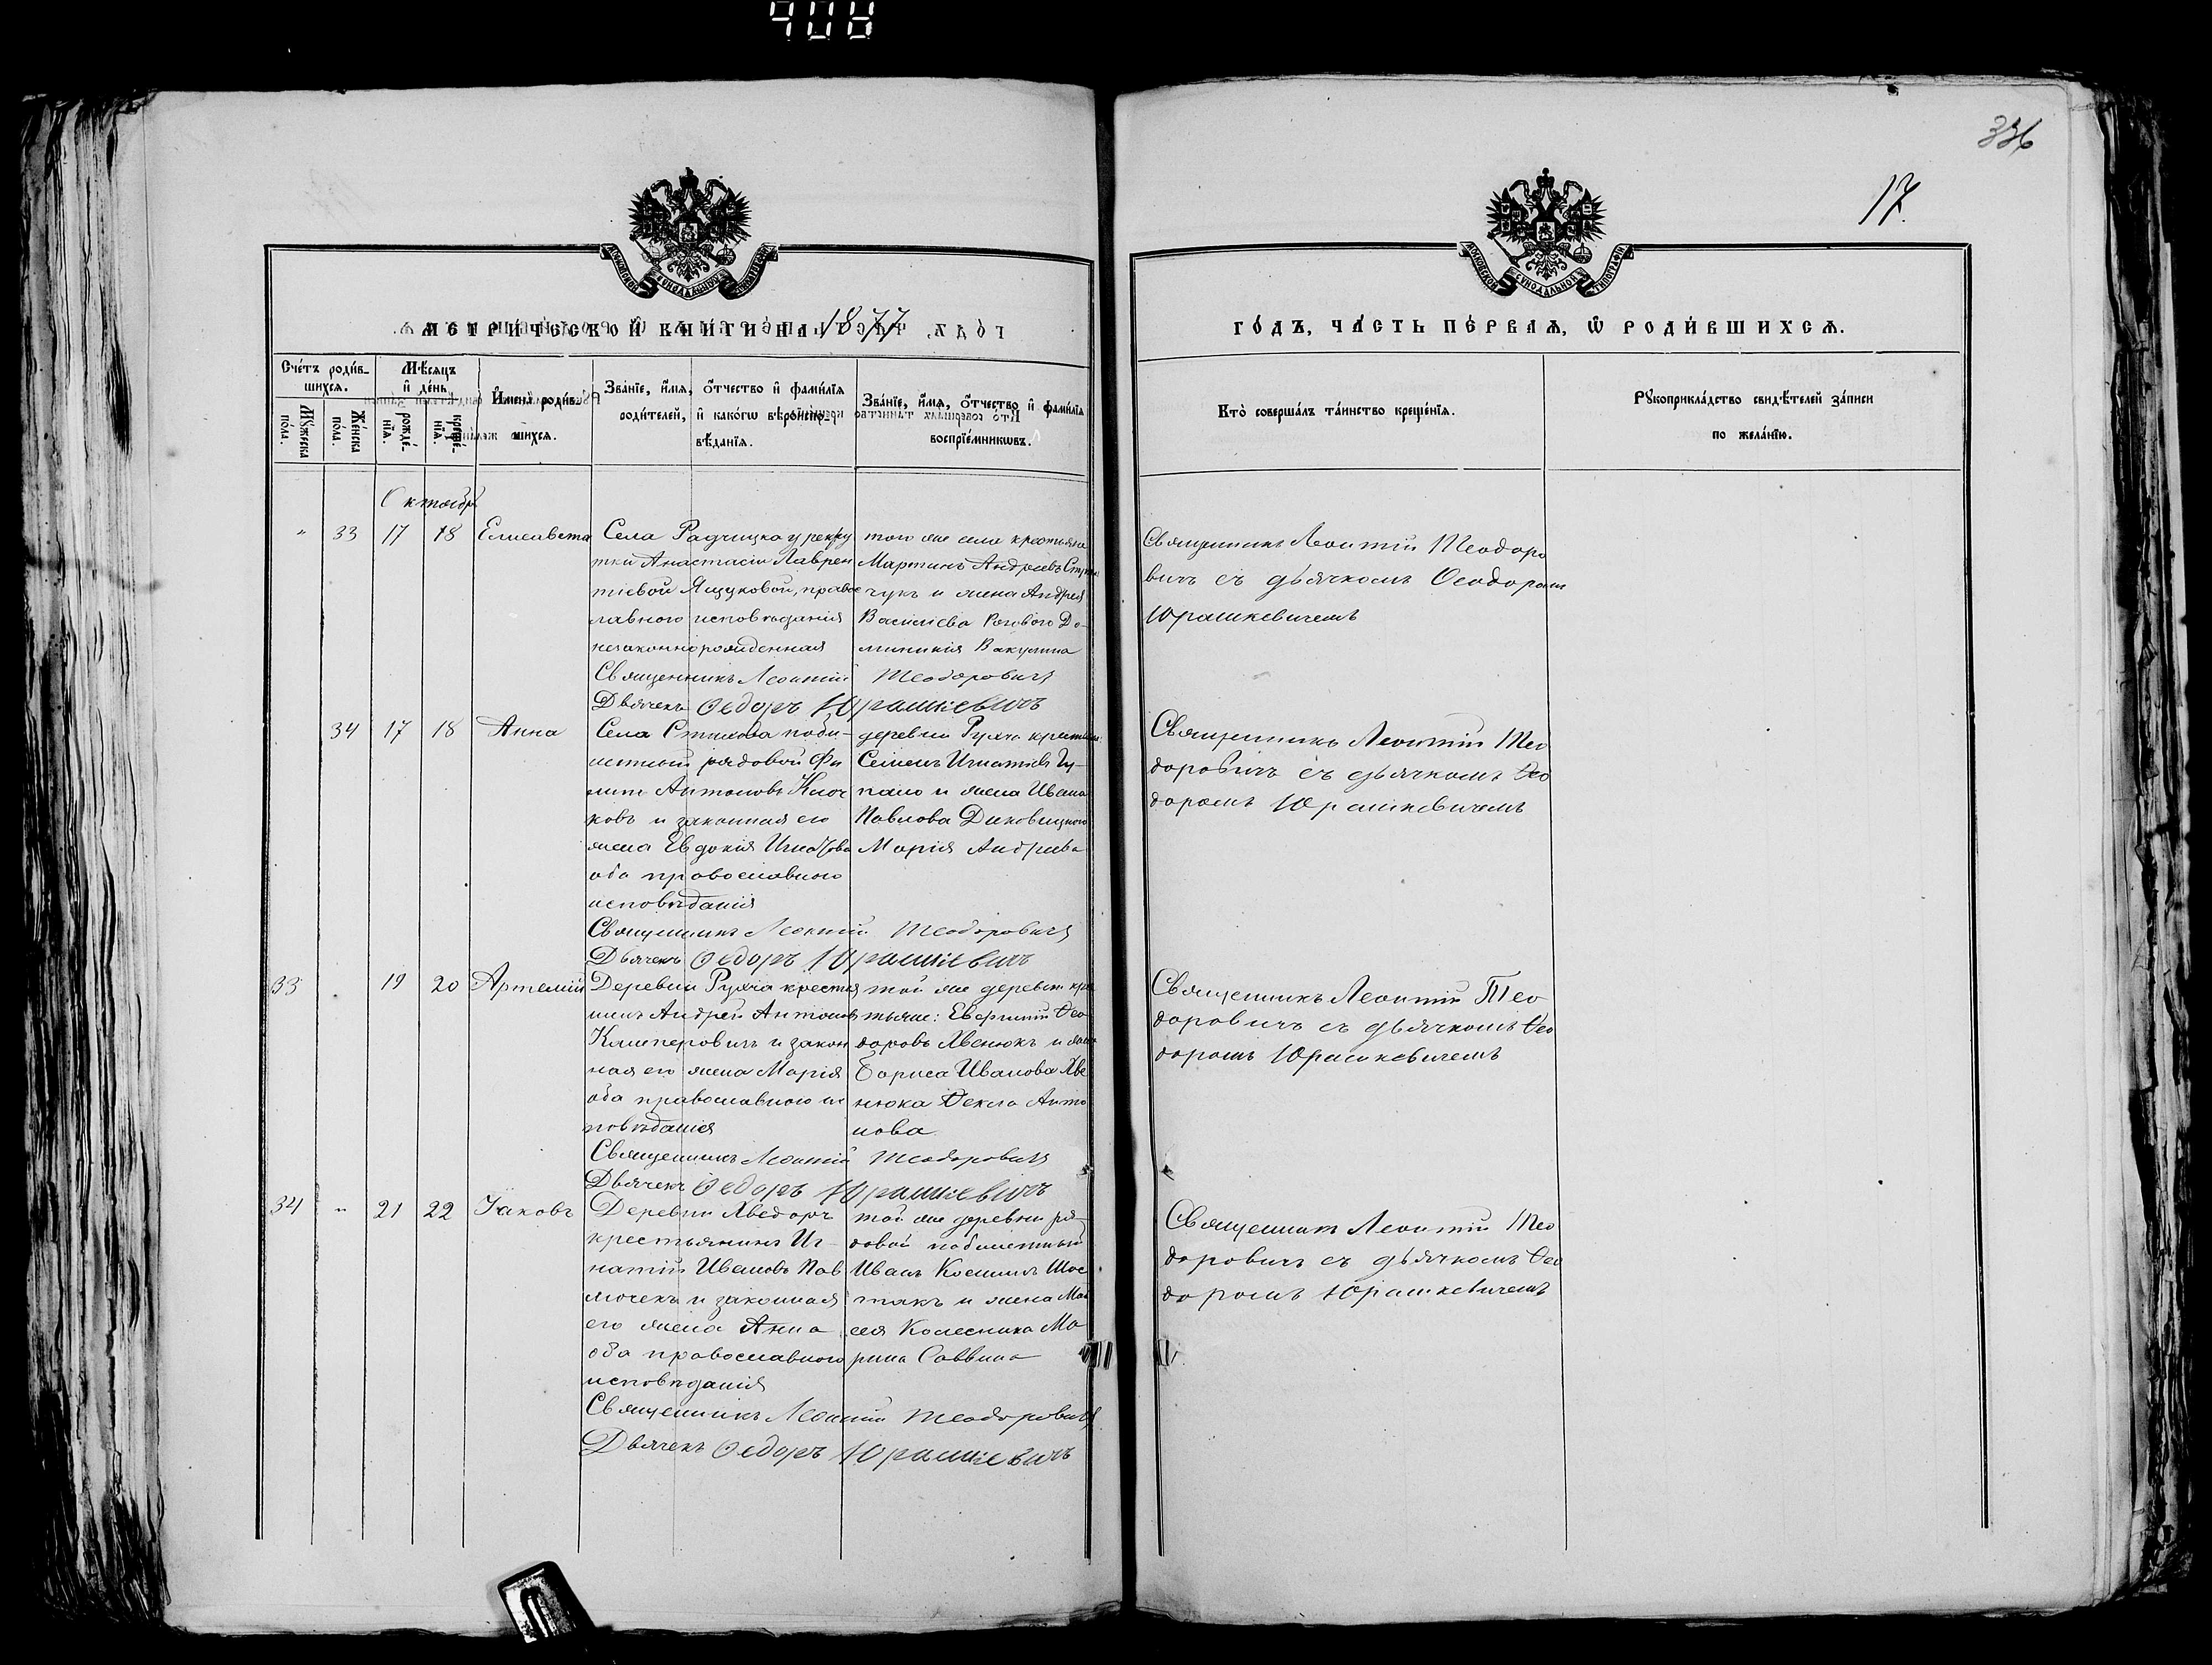 408
336
17.
МОСКОВСКОЙ СѴНОДАЛЬНОЙ ТИПОГРАФІИ
МЕТРИ́ЧЕСКОЙ КНИ́ГИ НА 1877
ГО́ДЪ, ЧА́СТЬ ПЕ́РВАѦ, Ѡ РОДИ́ВШИХСѦ.
Сче́тъ роди́в-
шихся.
Мꙋ́жеска
по́ла.
Же́нска
по́ла.
Мѣ́сяцъ
и҆ де́нь
рожде́-
нїѧ.
креще́-
нїѧ.
И҆мена̀ роди́в-
шихся.
Зва́нїе, и҆́мѧ, ѻ҆́тчество и҆ фами́лїѧ
роди́телей, и҆ како́гѡ вѣроисповѣ́данїѧ.
Зва́нїе, и҆́мѧ, ѻ҆́тчество и҆ фами́лїѧ
воспрїе́мникѡвъ.
Кто̀ соверша́лъ та́инство креще́нїѧ.
Рꙋкоприкла́дство свидѣ́телей за́писи
по жела́нїю.
Октябрь
" 33 17 18 Елисавета
Села Радчицка у рекру
тки Анастасіи Лаврен
тіевой Ящуковой, правос
лавного исповѣданія
незаконнорожденная
Священникъ Леонтій Теодоровичъ
Дьячекъ Ѳедоръ Юрашкевичъ
того же села крестьянин
Мартинъ Андреевъ
чукъ и жена Андрея
Василіева Рогового До-
миникія Вакулина
Священникъ Леонтій Теодоро
вичъ съ дьячкомъ Ѳеодоромъ
Юрашкевичемъ
34 17 18 Анна
Села Стахова
рядовой Фи
липъ Антоновъ Клоч
ковъ и законная его
жена Евдокія Игнатова
оба православного
исповѣданія
Священникъ Леонтій Теодоровичъ
Дьячекъ Ѳедоръ Юрашкевичъ
деревни Рухча
Семенъ Игнатіевъ Гу-
пало и жена Ивана
Павлова Диковицкого
Марія Андреева
Священникъ Леонтій Тео
доровичъ съ дьячкомъ Ѳео
доромъ Юрашкевичемъ
33 19 20 Артемій
Деревни Рухча крестья
нинъ Андрей Антоновъ
Кашперовичъ и закон
ная его жена Марія
оба православного ис
повѣданія
Священникъ Леонтій Теодоровичъ
Дьячекъ Ѳедоръ Юрашкевичъ
той же деревни крес
тьяне: Ѳео
доровъ Хвенюкъ и жена
Бориса Иванова Хве
нюка Ѳекла Анто
нова
Священникъ Леонтій Тео
доровичъ съ дьячкомъ Ѳео
доромъ Юрашкевичемъ
34 " 21 22 Іаковъ
Деревни Хведоры
крестьянинъ Иг-
натій Ивановъ Пав
лючекъ и законная
его жена Анна
оба православного
исповѣданія
Священникъ Леонтій Теодоровичъ
Дьячекъ Ѳедоръ Юрашкевичъ
той же деревни ря-
довой
Иванъ Шос
такъ и жена Мой
сея Колесника Ма
рина Саввина
Священникъ Леонтій Тео
доровичъ съ дьячкомъ Ѳео
доромъ Юрашкевичемъ